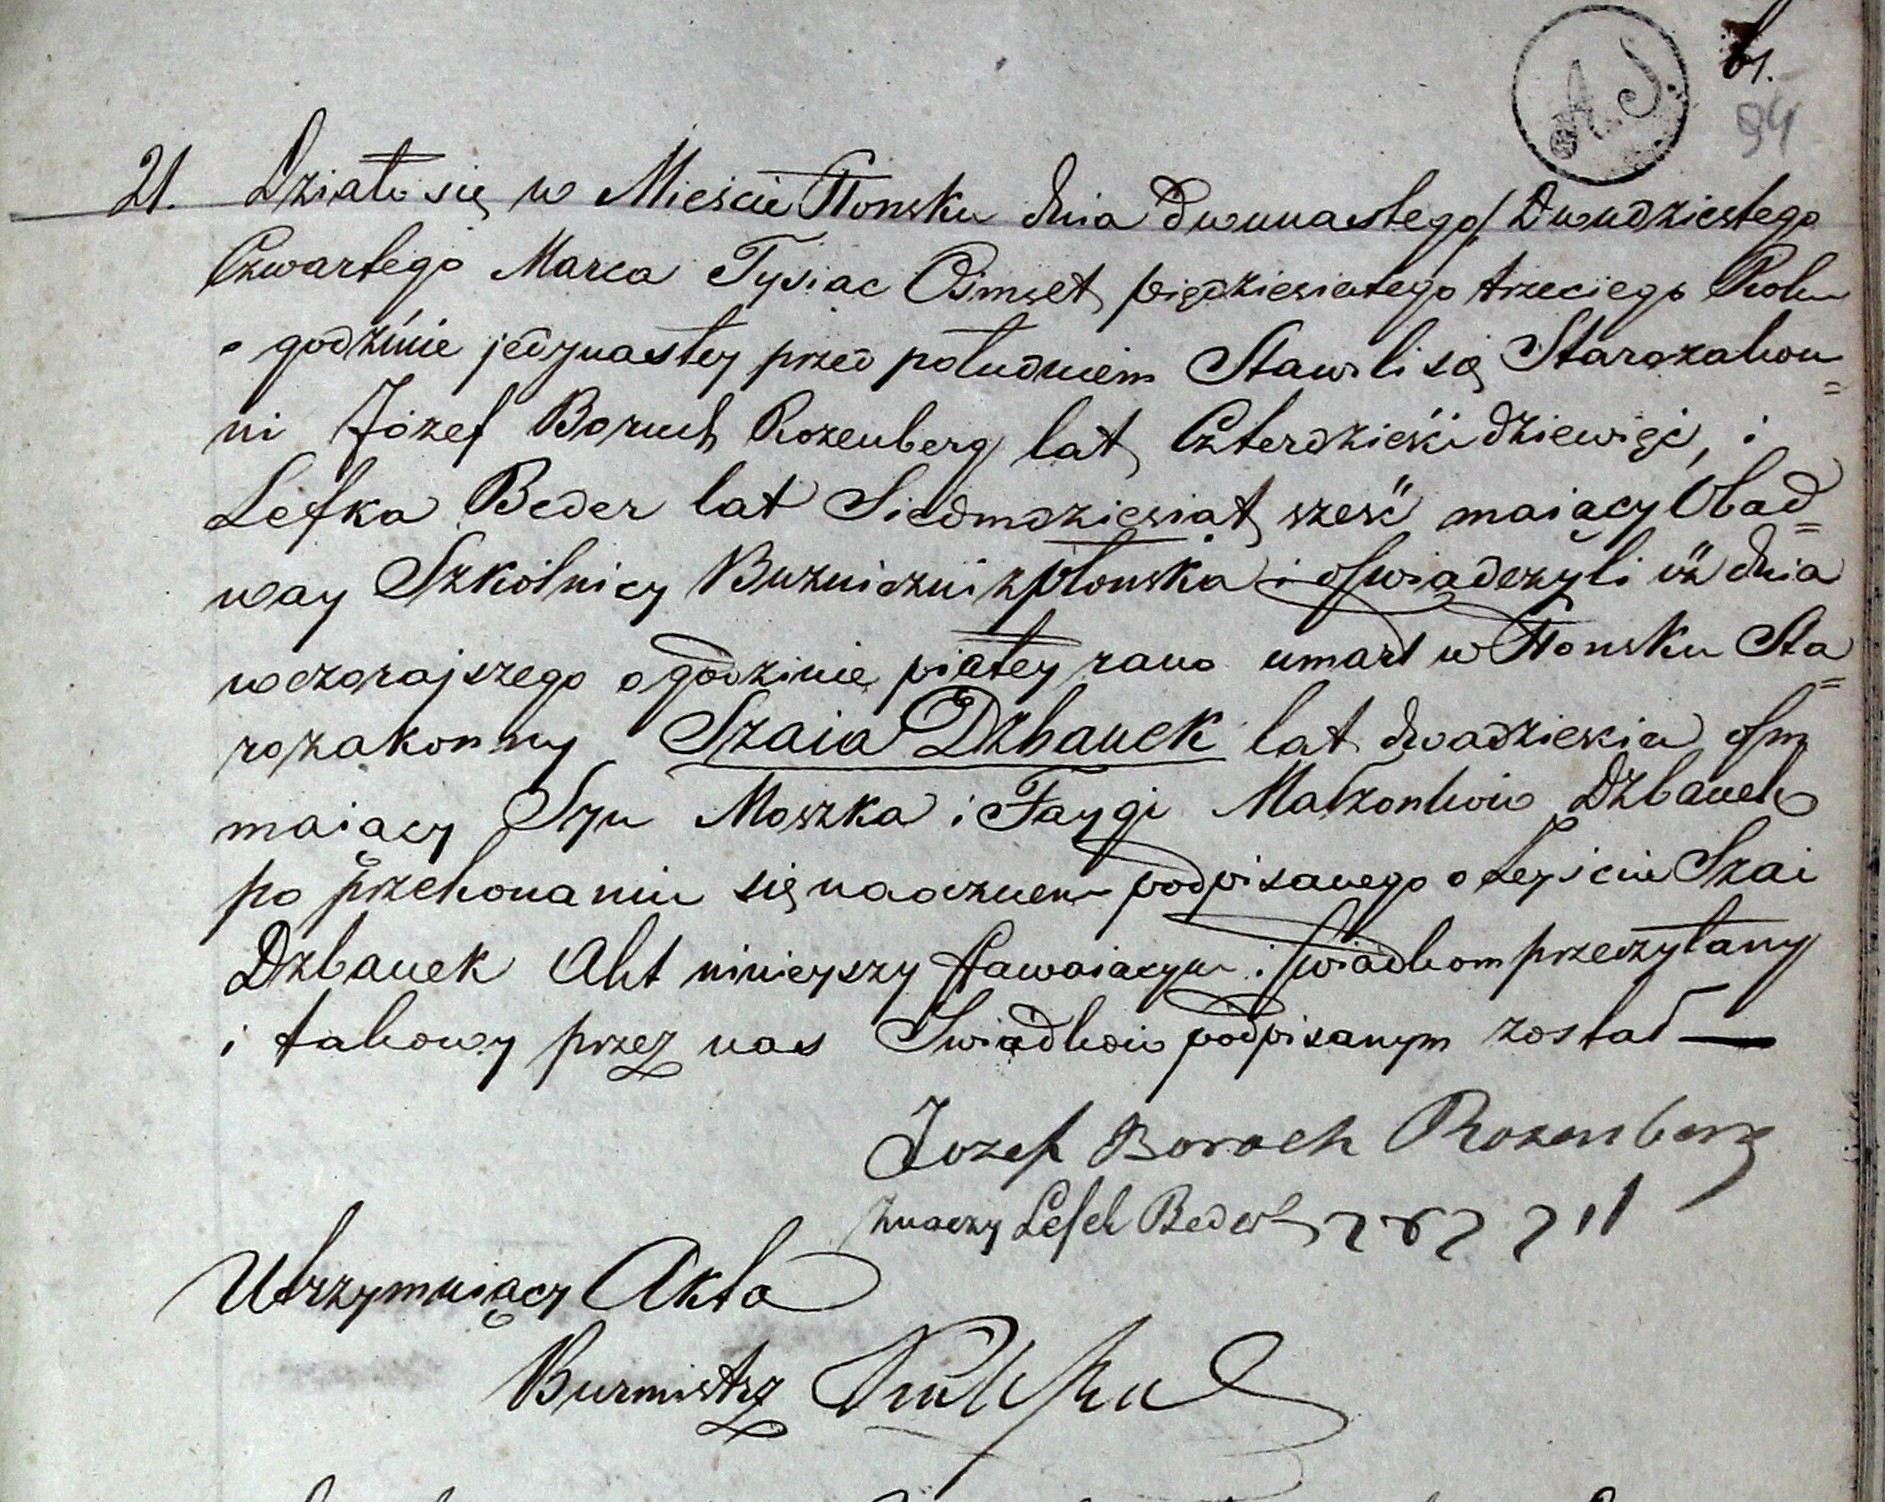 61.
94
21. Działo się w Mieście Płońsku dnia dwunastego/Dwudziestego
Czwartego Marca Tysiac Ośmset piędziesiatego trzeciego Roku
o godzinie jedynastey przed południem Stawili się Starozakon=
ni Józef Boruch Rozenberg lat Czterdzieści dziewięć, i
Lefka Beder lat Siedmdziesiąt sześć maiący Obad=
way Szkólnicy Bużniczni z płońska i oświadczyli iż dnia
wczorajszego o godzinie piątey rano umarł w Płońsku Sta=
rozakonny Szaia Dzbanek lat dwadzieścia ośm
maiący Syn Moszka i Faygi Małżonków Dzbanek
po przekonaniu się naocznem podpisanego o zeyściu Szai
Dzbanek Akt ninieyszy stawaiącym i świadkom przeczytany
i takowy przez nas Swiadków podpisanym został —
Jozef Boroch Rozenberg
Znaczy Lefek Beder
Utrzymuiący Akta
Burmistrz